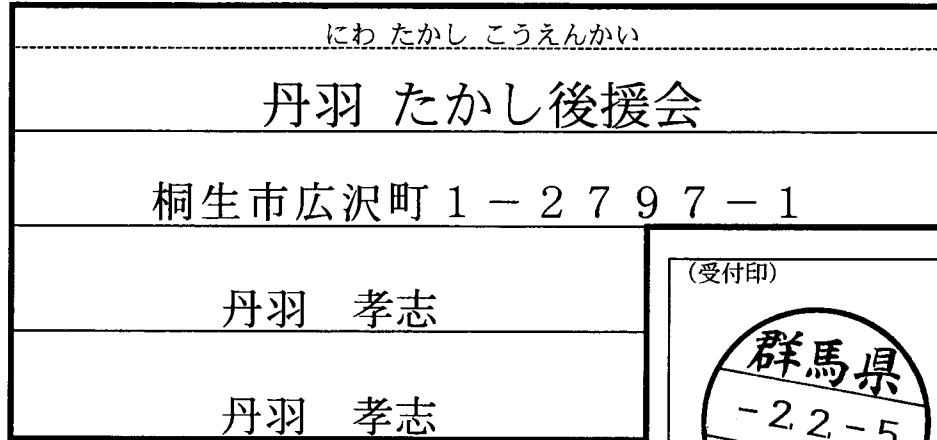 にわ たかし こうえんかい
丹羽 たかし後援会
桐生市広沢町1－2797－1
丹羽　孝志
(受付印)
群馬県
-2.2.-5
丹羽　孝志